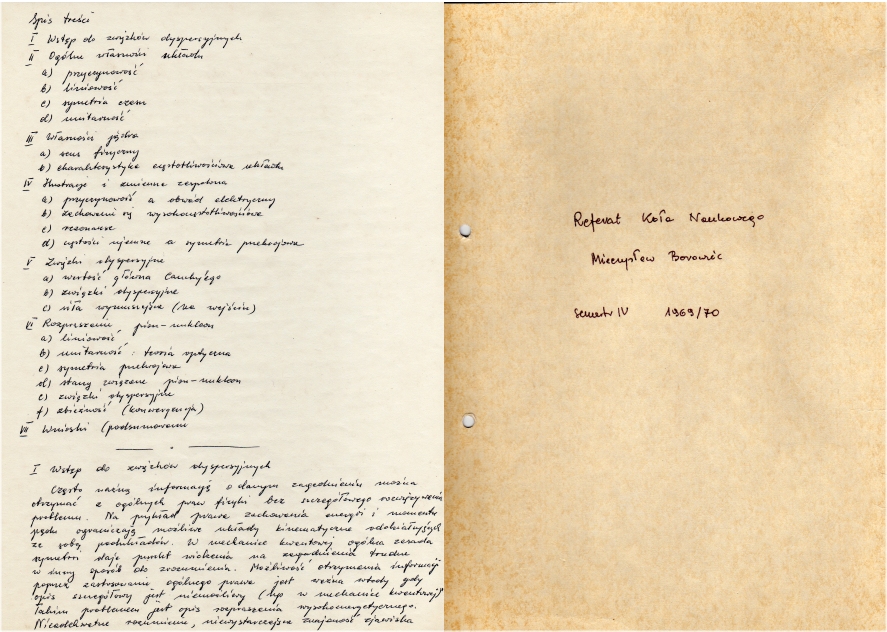 Spis treści
I Wstęp do związków dyspersyjnych
II Ogólne własności układu
a) przyczynowość
b) liniowość
c) symetria czasu
d) unitarność
III Własności jądra
a) sens fizyczny
b) charakterystyka częstotliwościowa układu
IV Ilustracje i zmienne zespolone
a) przyczynowość a obwód elektryczny
b) zachowanie się wysokoczęstotliwościowe
c) rezonanse
d) częstości ujemne a symetria przekrojowa
V Związki dyspersyjne
a) wartość główna Cauchy'ego
b) związki dyspersyjne
c) siła wymuszająca (na wejściu)
VI Rozpraszanie pion-nukleon
a) liniowość
b) unitarność: teoria optyczna
c) symetria przekrojowa
d) stany związane pion-nukleon
e) związki dyspersyjne
f) zbieżność (konwergencja)
VII Wnioski (podsumowanie
I Wstęp do związków dyspersyjnych
Często ważną informację o danym zagadnieniu można
otrzymać z ogólnych praw fizyki bez szczegółowego rozwiązywania
problemu. Na przykład prawa zachowania energii i momentu
pędu ograniczają możliwe układy kinematyczne oddziałujących
ze sobą podukładów. W mechanice kwantowej ogólna zasada
symetrii daje punkt widzenia na zagadnienia trudne
w inny sposób do zrozumienia. Możliwość otrzymania informacji
poprzez zastosowanie ogólnego prawa jest ważna wtedy gdy
opis szczegółowy jest niemożliwy (np w mechanice kwantowej)
Takim problemem jest opis rozpraszania wysokoenergetycznego.
Nieadekwatne rozumienie, niewystarczająca znajomość zjawiska
Referat Koła Naukowego
Mieczysław Borowiec
semestr IV 1969/70